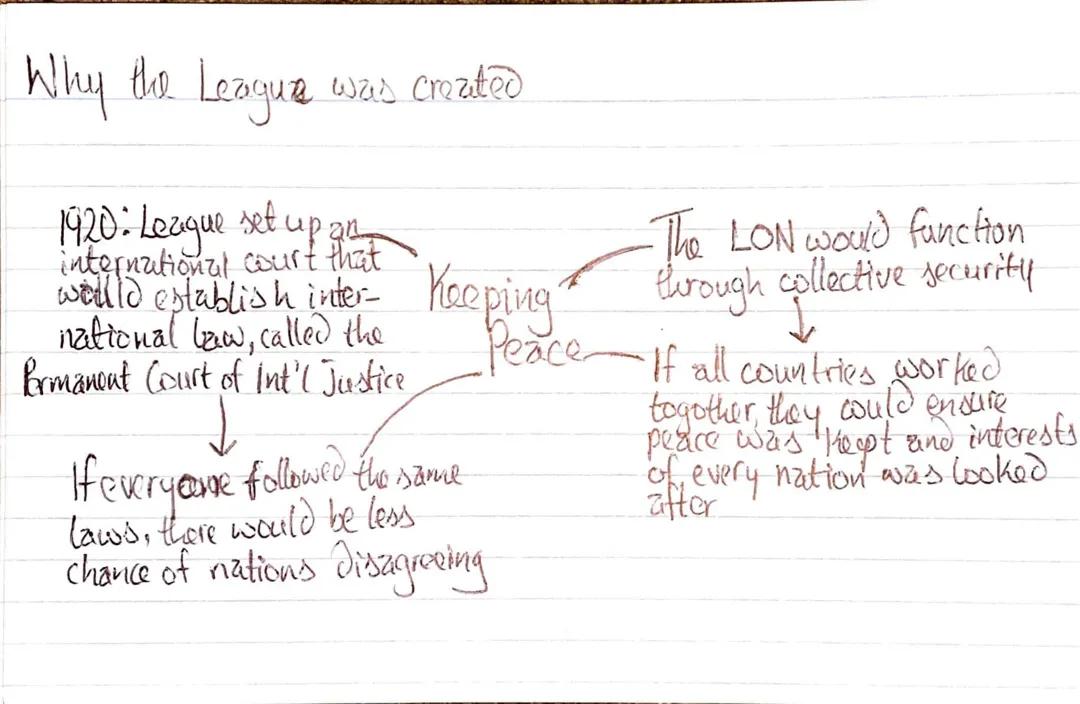 Why the League was created
1920: League set up an
international court that
would establish inter-
national law, called the
Permanent Court of Int'l Justice
If everyone followed the same
laws, there would be less
chance of nations disagreeing
Keeping
Peace
The LON would function
through collective security
If all countries worked
together, they could ensure
peace was kept and interests
of every nation was looked
after